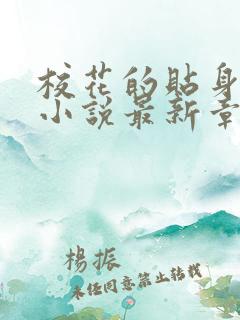 校花的貼身
小說最新章
楊振
未经同意禁止转载